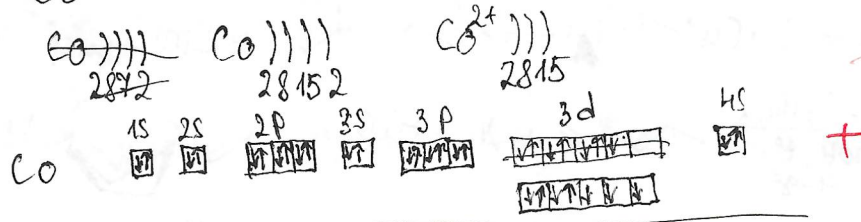 Co )))) Co )))) Co²⁺ )))
2872 2 8 15 2 2815
1S 2S 2P 3S 3P 3d 4S
Co ↓↑ ↓↑ ↓↑ ↓↑ ↓↑ ↓↑ ↓↑ ↓↑ ↓↑ ↓↑ ↓↑ ↓↑ ↓ ↓↑ +
↓↑ ↓↑ ↓ ↓ ↓